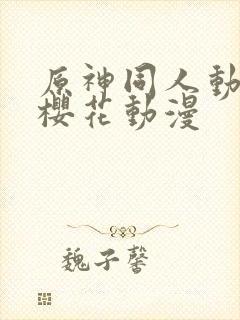 原神同人動
櫻花動漫
魏子馨